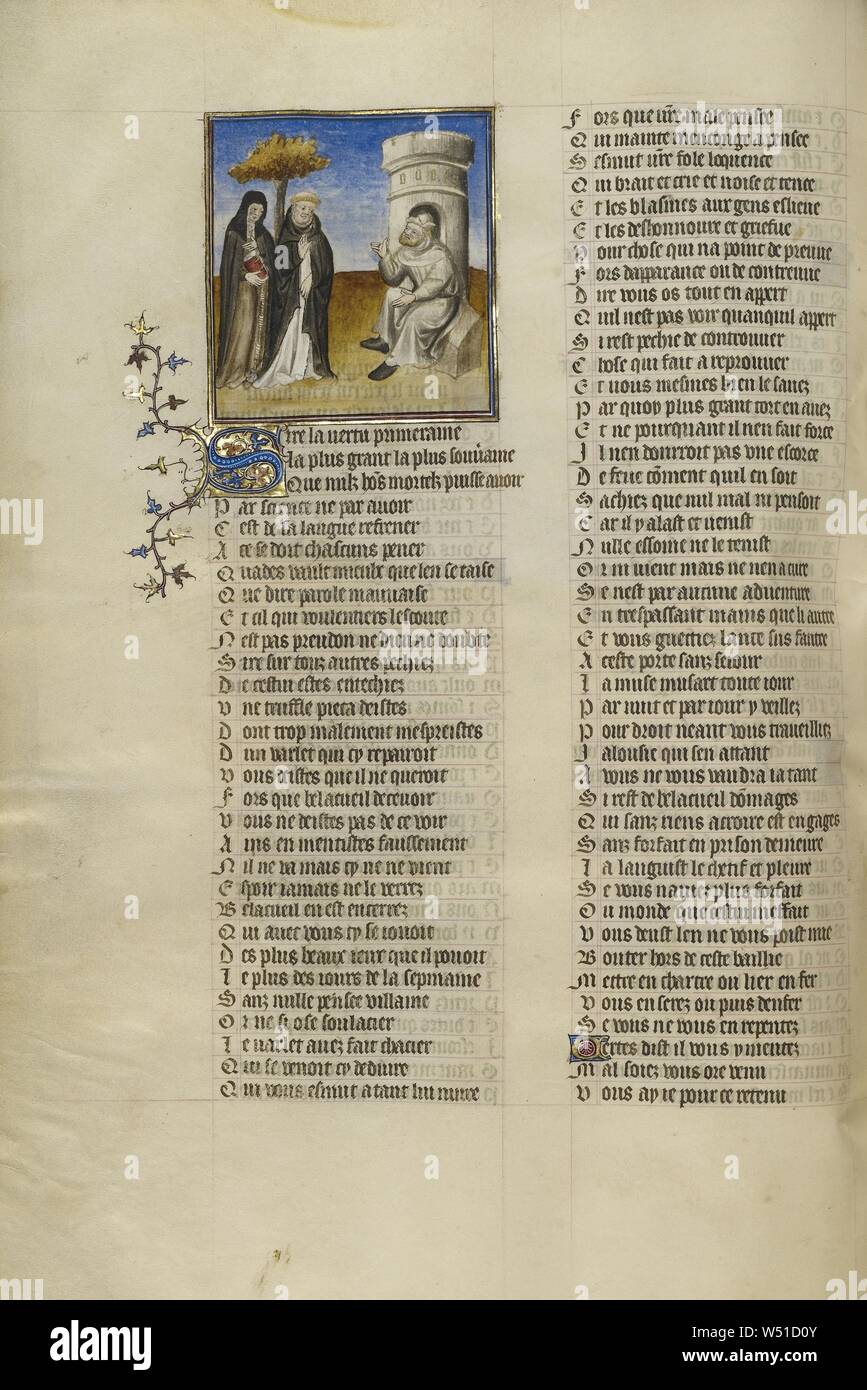 Sire la uertu primeraine
la plus grant la plus souueraine
Que nulz hōs mortelz puisse auoir
Par science ne par auoir
Cest de la langue refrener
A ce se doit chascuns pener
Quades vault mieulx que len se taise
Que dire parole mauuaise
Et cil qui voulentiers lescoute
Nest pas preudon ne dieu ne doubte
Sire sur touz autres pechiez
De cestui estes entechiez
Vne truffle pieca deistes
Dont trop malement mespreistes
Dun varlet qui cy repairoit
Vous deistes que il ne queroit
Fors que belacueil deceuoir
Vous ne deistes pas de ce voir
Ains en mentistes faussement
Nil ne va mais cy ne ne vient
Espoir iamais ne le verrez
Belacueil en est enserrez
Qui auec vous cy se iouoit
Des plus beaux ieux que il pouoit
Le plus des iours de la sepmaine
Sanz nulle pensee villaine
Or ne si ose soulacier
Le varlet auez fait chacier
Qui se venoit cy deduire
Qui vous esmut a tant lui nuire
Fors que vr̄e male pensee
Qui mainte mencongea pensee
Se smut vr̄e fole loquence
Qui brait et crie et noise et tence
Et les blasmes aux gens eslieue
Et les deshonnoure et griefue
Pour chose qui na point de preuue
Fors dapparance ou de contreuue
Dire vous os tout en appert
Quil nest pas voir quanquil appert
Si rest pechie de controuuer
Chose qui fait a reprouuer
Et vous mesmes bien le sauez
Par quoy plus grant tort en auez
Et ne pourquant il nen fait force
Il nen donrroit pas vne escorce
De feue cōment quil en soit
Sachiez que nul mal ni pensoit
Car il y alast et uenist
Nulle essoine ne le tenist
Or ni uient mais ne nen a cure
Se nest par aucune aduenture
En trespassant mains que li autre
Et vous guettiez lance sus fautre
A ceste porte sanz seiour
La muse musart toute iour
Par nuit et par iour y veillez
Pour droit neant vous traueilliez
Jalousie qui sen attant
A vous ne vous vaudra ia tant
Si rest de belacueil dōmages
Qui sanz riens acroire est en gages
Sanz forfait en prison demeure
La languist le chetif et pleure
Se vous nauiez plus forfait
Ou monde que cestui meffait
Vous deust len ne vous poist mie
Bouter hors de ceste baillie
Mettre en chartre ou lier en fer
Vous en serez ou puis denfer
Se vous ne vous en repentez
Certes dist il vous y mentez
Mal soiez vous ore venu
Vous ay ie pour ce retenu
alamy
Image ID: W51D0Y
www.alamy.com